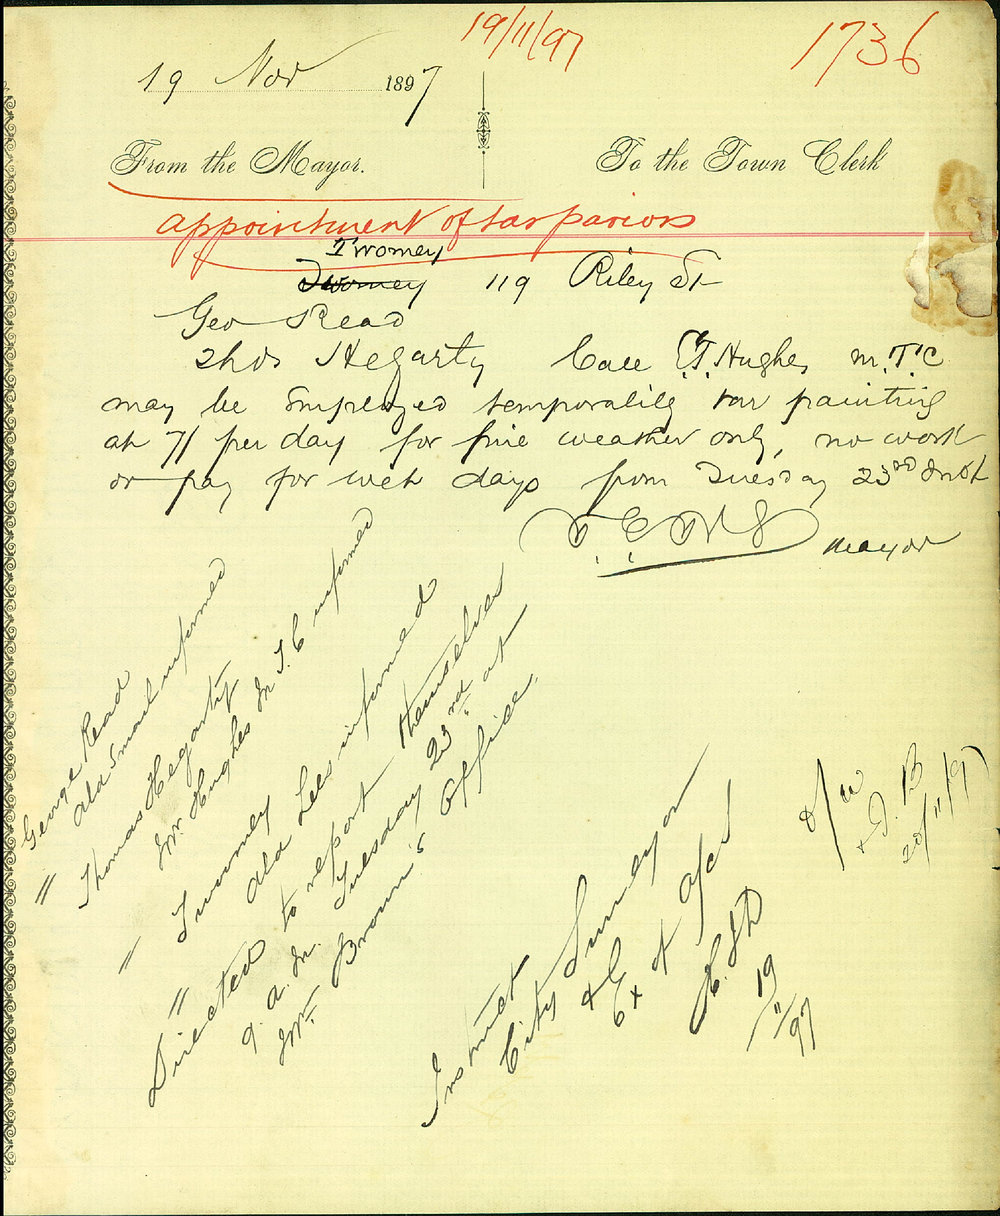 19/11/97
1736
19 Nov 1897
From the Mayor.
To the Town Clerk
Appointment of tar paviors
Twomey
Twomey 119 Riley St
Geo Read
Thos Hegarty Care C.T. Hughes M.T.C
may be Employed temporalily tar painting
at 7/ per day for fine weather only, no work
or pay for wet days from Tuesday 23rd Inst
Mayor
George Read
" Ald Smail informed
Thomas Hegarty
" Mr. Hughes M.T.C informed
Twomey
" Ald Lees informed
Directed to report themselves
9. a.m. Tuesday 23rd at
Mr. Brown's Office.
Instruct
City Surveyor
& Ex of
19/11/97
20/11/97